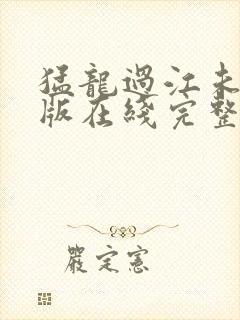 猛龍過江未
版在綫完整
嚴定憲